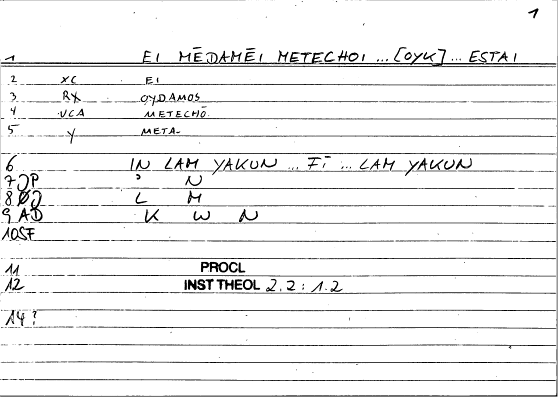 1
1 EI MĒDAMĒI METECHOI ... [OYK] ... ESTAI
2 XC EI
3 RX OYDAMOS
4 VCA METECHŌ
5 Y META-
6 IN LAM YAKUN ... FĪ ... LAM YAKUN
7 JP ʾ N
8 ØJ L M
9 AD K W N
10 SF
11 PROCL
12 INST THEOL 2.2 : 1.2
14 ?